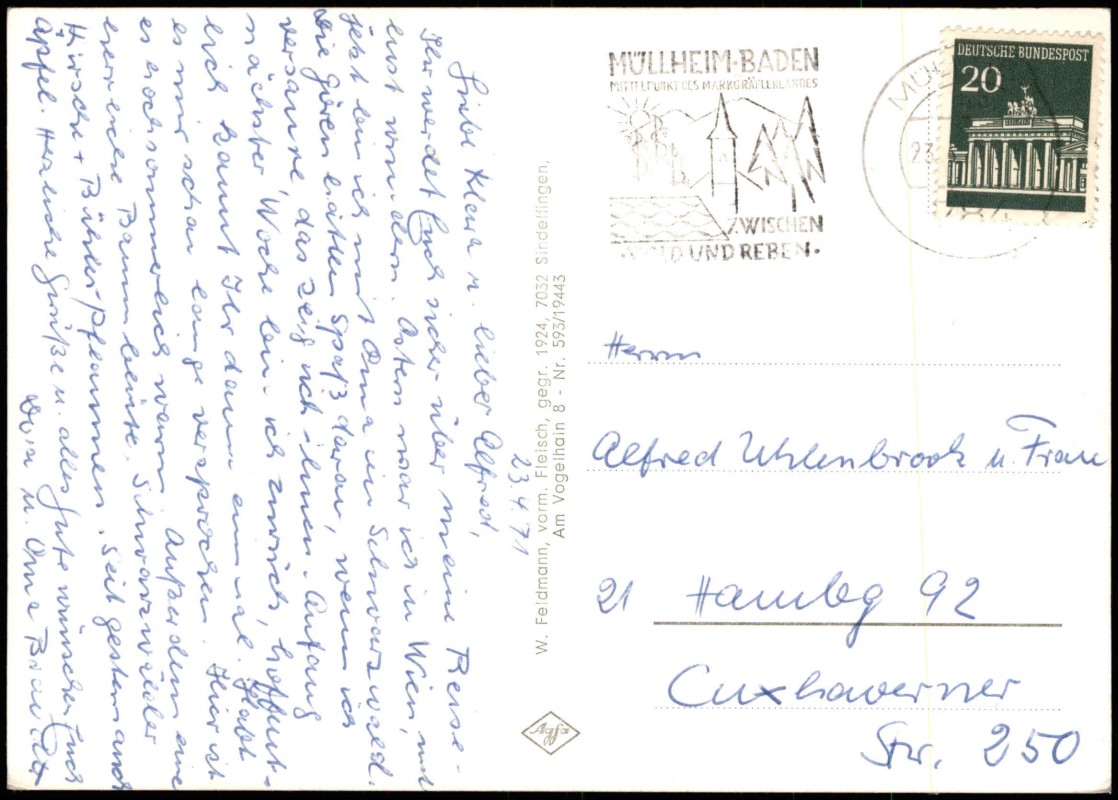 23.4.71
Liebe Klara u. lieber Alfred,
Ihr werdet Euch sicher über meine Reise-
lust wundern. Ostern war ich in Wien, und
jetzt bin ich mit Oma im Schwarzwald.
Die Gören hätten Spaß daran, wenn ich
versänke, das zeig ich ihnen. Anfang
nächster Woche bin ich zurück, hoffent-
lich kommt Ihr dann einmal. Habt
es mir schon lange versprochen. Hier ist
es hochsommerlich warm. Außerdem eine
herrliche Baumblüte. Schwarzwälder
Kirsche + Bühler-Pflaumen. Seit gestern auch
Äpfel. Herzliche Grüße u. alles Gute wünschen Euch
Dora u. Oma
W. Feldmann, vorm. Fleisch, gegr. 1924, 7032 Sindelfingen,
Am Vogelhain 8 - Nr. 593/19443
Agfa
MÜLLHEIM·BADEN
MITTELPUNKT DES MARKGRÄFLERLANDES
ZWISCHEN
WALD UND REBEN
DEUTSCHE BUNDESPOST
20
Herrn
Alfred Uhlenbrook u. Frau
21 Hambg 92
Cuxhaverner
Str. 250